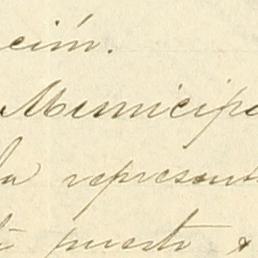 ción.
Municipa
la represent
puesto